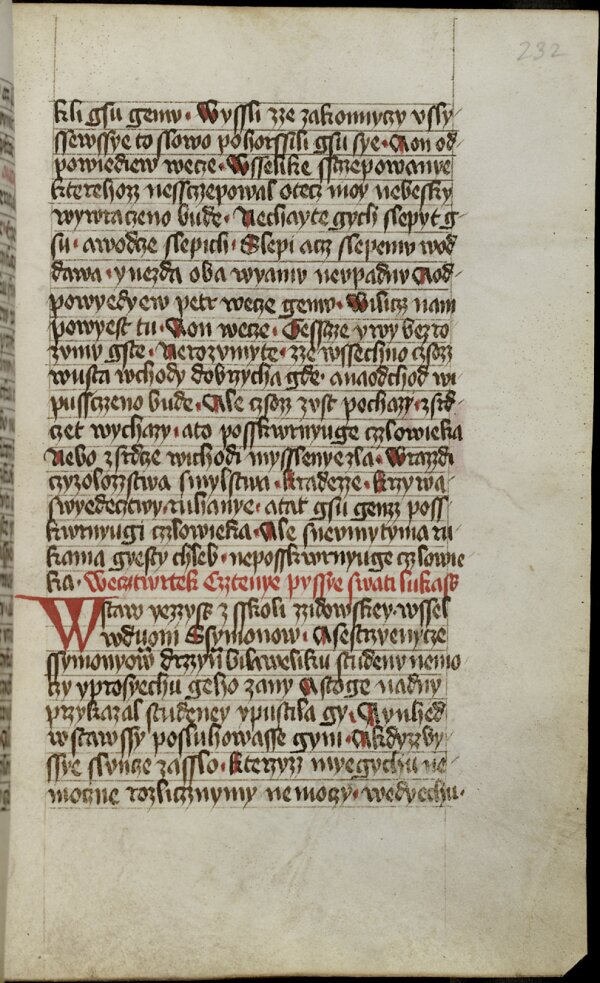 232
kli gsu gemv · Wyssli zze zakonnyczy vsly-
ssewssye to slowo pohorssili gsu sye · Aon od-
powiediew wecze · Wsselike sstzepowanye
kterehozz nesstzepowal otecz moy nebesky
wywraczeno bude · Nechayte gych slepyt g-
su · awodcze slepich · Slepi acz slepemv wod
dawa · y nezda oba wyamv nevpadnv Aod-
powyedyew petr wecze gemv · Wilicz nam
powyest tu · Aon wecze · Gesscze y wy bez ro-
zvmv gste · Nerozvmyte · zze wssechno czozz
wusta wchody dobrzycha gde · anaodchod wi
pussczeno bude · Ale czozz zvst pochazy · zsrd-
czet wychazy · ato posskwrnyuge czlowieka
Nebo zsrdcze wichodi mysslenye zla · Wrazzdi
czyzolozstwa smylstwa · kradezze · krzywa
swyedecztwy · ruhanye · atat gsu genz poss-
kwrnyugi czlowieka · Ale snevmytyma ru-
kama gyesty chleb · neposskwrnyuge czlowie
ka · Wecztwrtek Cztenye pyssye swati lukass
Wstaw yezzyss z sskoli zzidowskey · wssel
wduom Symonow · Asestrzyenycze
ssymonyow drzyn bilaweliku studeny nemo-
czy yprosyechu geho zany Astoge nadny
przykazal studeney ypustila gy · Aynhed
wstawssy posluhowasse gym · Akdyzz by-
ssye slvncze zasslo · kterzyzz myegychu ne-
moczne rozlicznymy nemoczy · wedyechu ·